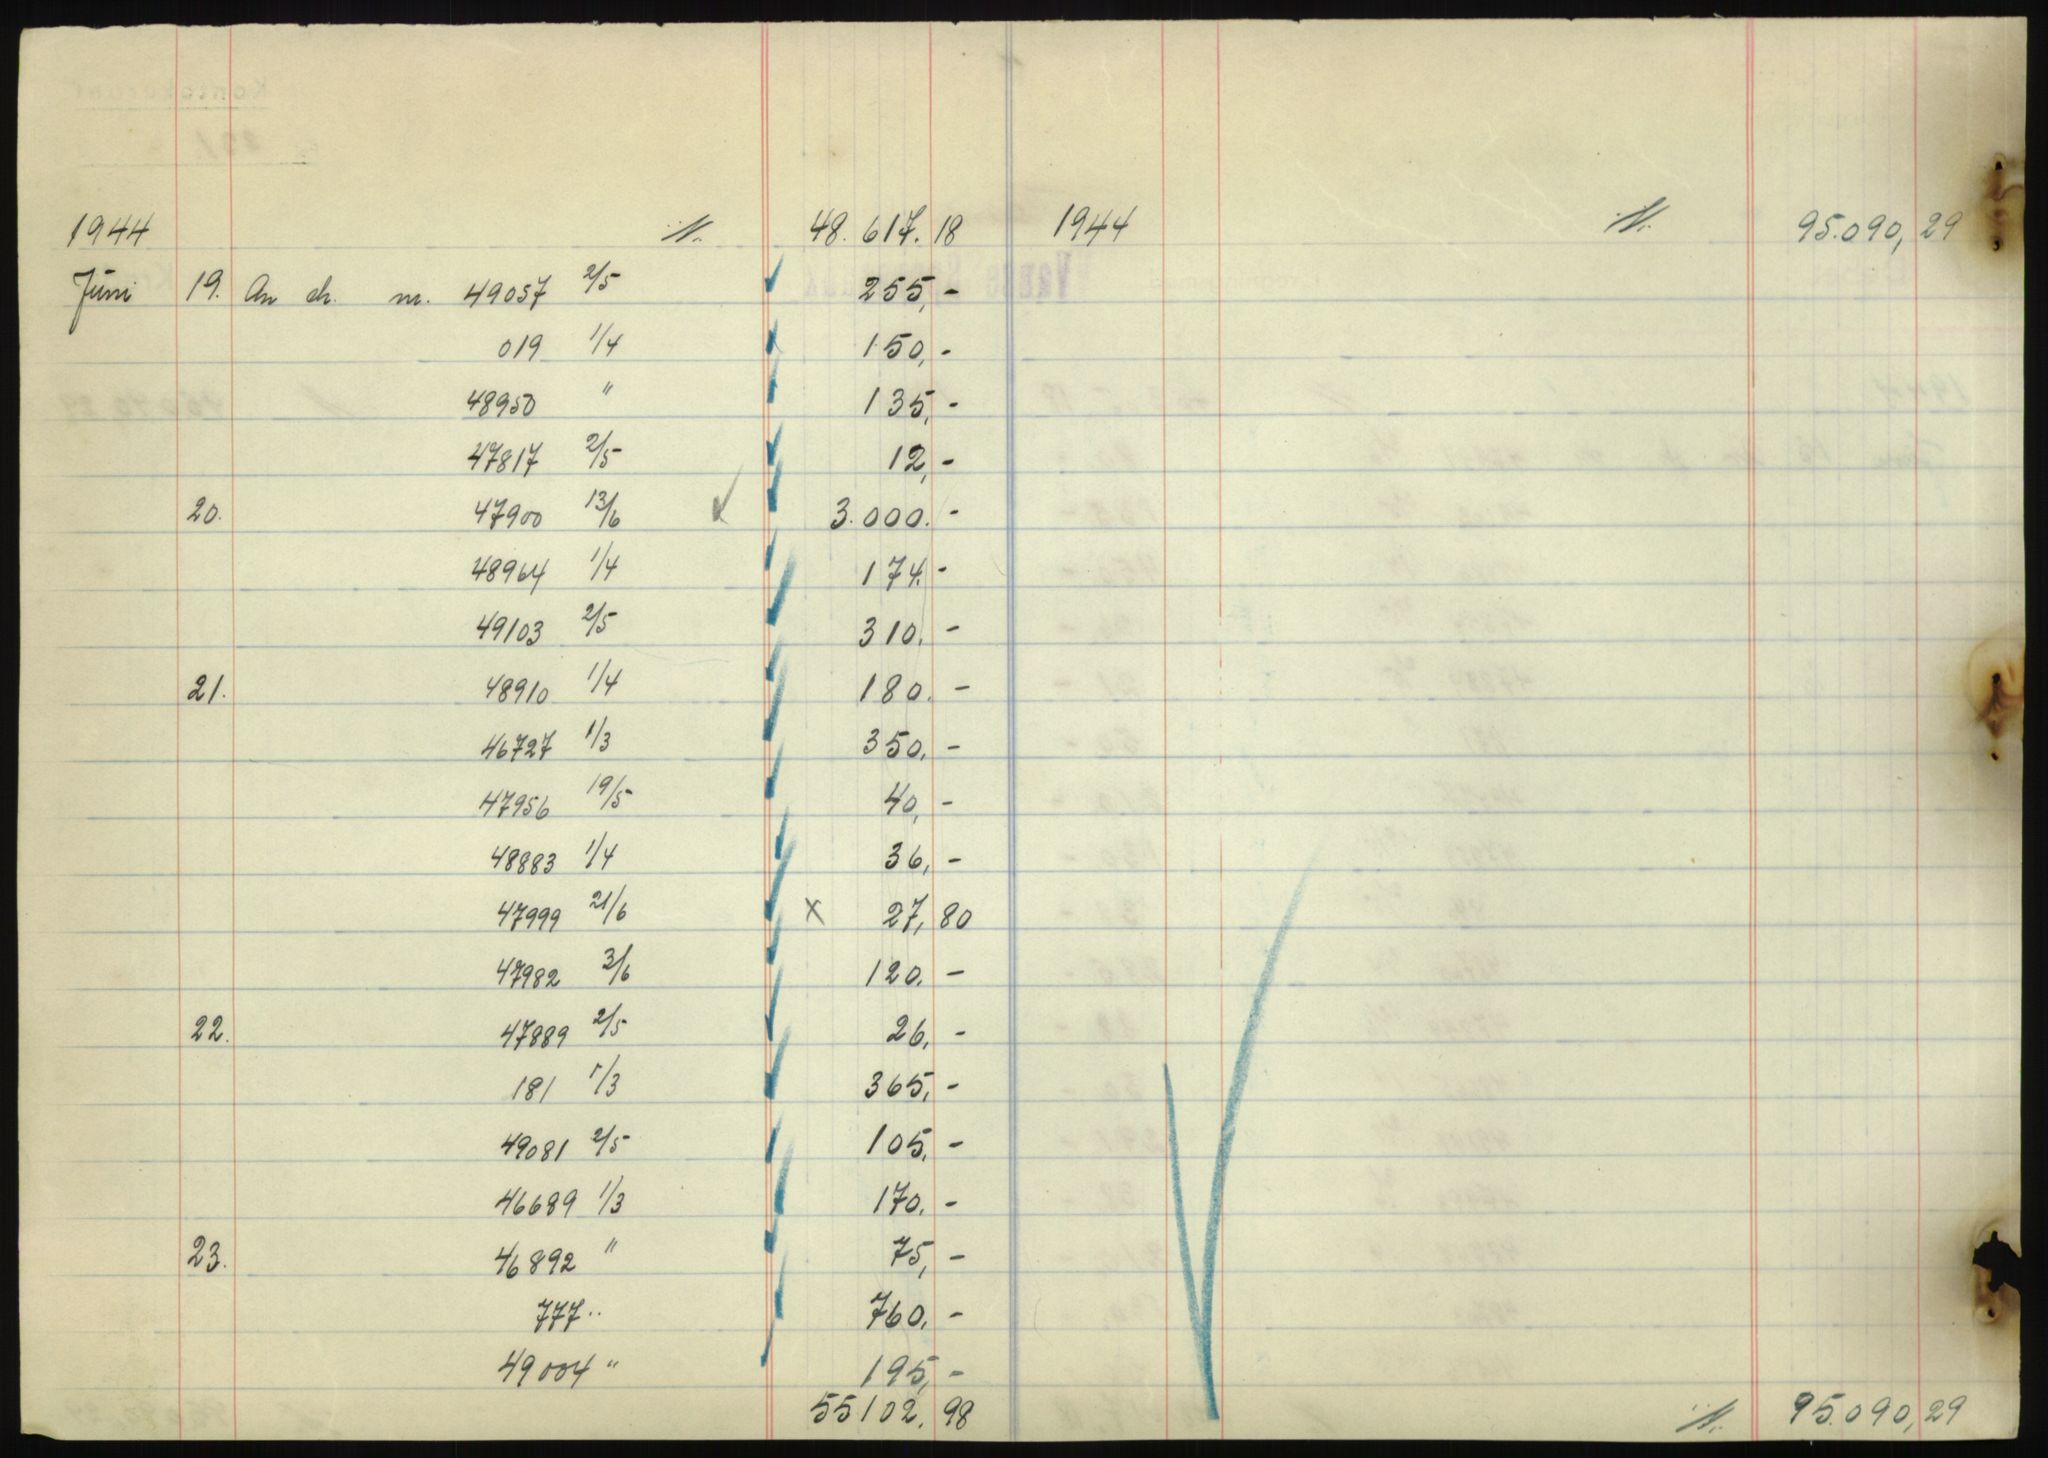 1944 ·/. 48.617.18 1944 ·/. 95.090,29
Juni 19. An ch. nr. 49057 2/5 255,-
019 1/4 150,-
48950 " 135,-
47817 2/5 12,-
20. 47900 13/6 3.000.-
48964 1/4 174.-
49103 2/5 310.-
21. 48910 1/4 180.-
46727 1/3 350,-
47956 19/5 40,-
48883 1/4 36,-
47999 21/6 x 27,80
47982 3/6 120.-
22. 47889 2/5 26,-
181 1/3 365,-
49081 2/5 105,-
46689 1/3 170.-
23. 46892 " 75,-
777 " 760,-
49004 " 195,-
55102.98 ·/. 95.090,29